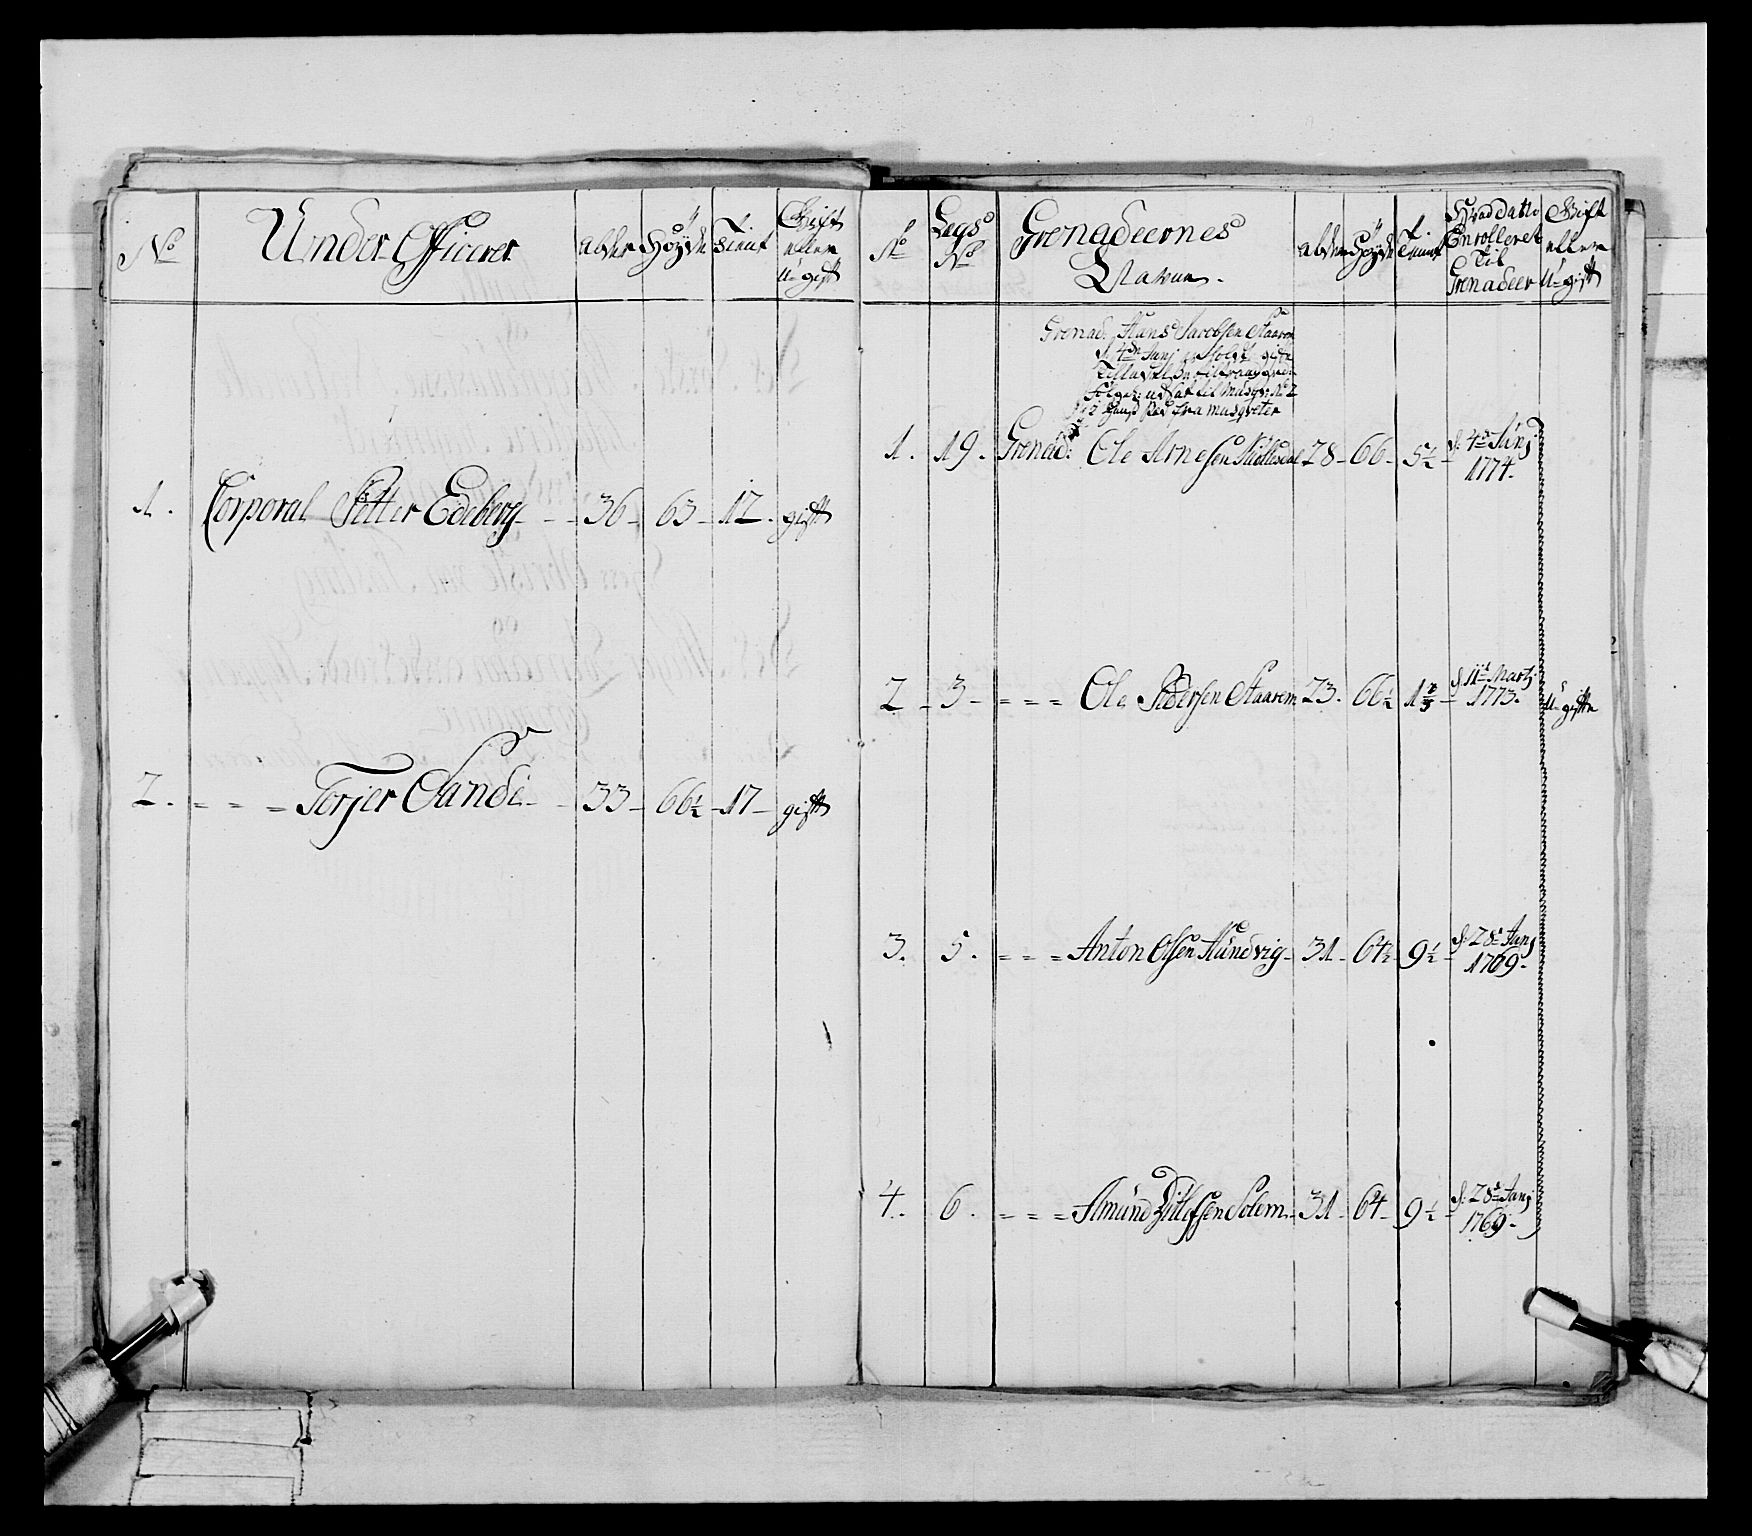 No
Under Officerer
Alder
Høyde
Tient
Gift
eller
U-gift
1. Corporal Petter Edeberg - - 36 - 63 - 12. gift
2. = = = Torjer Sande - - 33 - 66½ - 17 - gift
No
Legs
No
Grenadeernes
Navne.
Alder
Høyde
Tient
Hvad Datto
Enrolleret
Til
Grenadeer
Gift
eller
U-gift
Grenad: Hans Jacobsen Staarem
d: 4de Junj
fra Musqveter
1. 19. Grenad: Ole Arnesen 28 - 66 - 5½ - d: 4de Junj
1774.
2 - 3 - = = = Ole Pedersen Staarem 23. 66½ 1⅔ - d 11te Martj
1773. U-gifte
3. 5. = = = Anton Olsen Hundvig - 31 - 64½ 9½ - d: 28de Junj
1769.
4. 6. = = = Amund Ditlefsen Solem - 31 - 64 - 9½ - d: 28de Junj
1769.